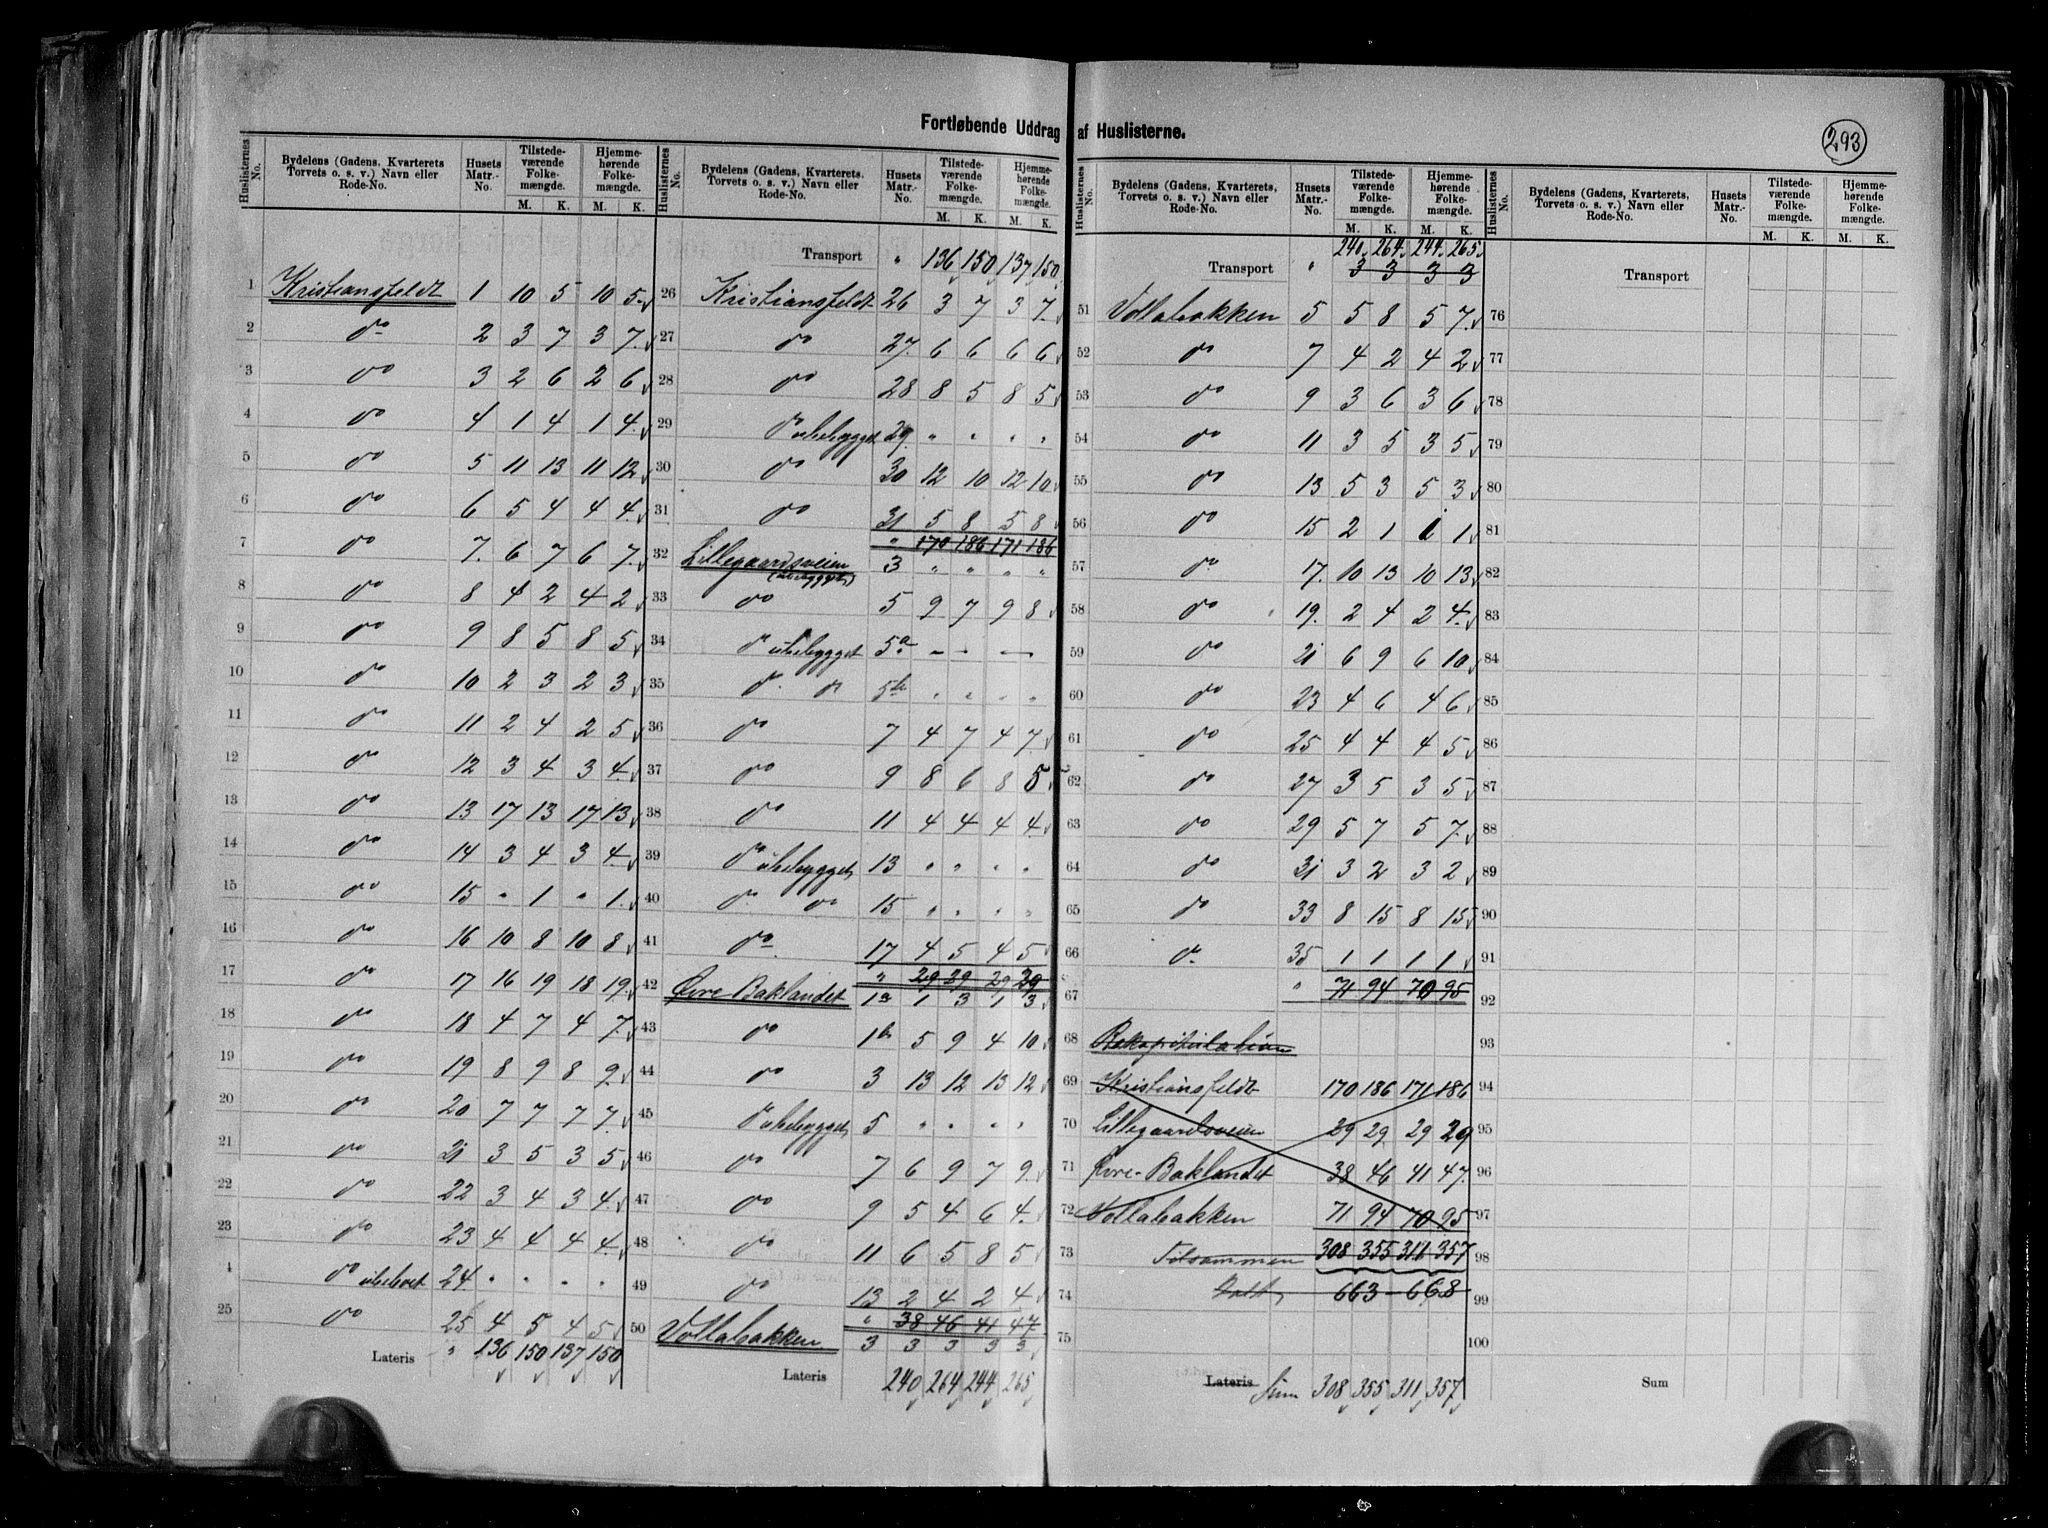 Fortløbende Uddrag af Huslisterne.
293
Huslisternes No. | Bydelens (Gadens, Kvarterets Torvets o. s. v.) Navn eller Rode-No. | Husets Matr.-No. | Tilstedeværende Folkemængde. M. K. | Hjemmehørende Folkemængde. M. K.
1 Kristiansfeldt 1 10 5 10 5
2 do 2 3 7 3 7
3 do 3 2 6 2 6
4 do 4 1 4 1 4
5 do 5 11 13 11 12
6 do 6 5 4 4 4
7 do 7 6 7 6 7
8 do 8 4 2 4 2
9 do 9 8 5 8 5
10 do 10 2 3 2 3
11 do 11 2 4 2 5
12 do 12 3 4 3 4
13 do 13 17 13 17 13
14 do 14 3 4 3 4
15 do 15 " 1 " 1
16 do 16 10 8 10 8
17 do 17 16 19 18 19
18 do 18 4 7 4 7
19 do 19 8 9 8 9
20 do 20 7 7 7 7
21 do 21 3 5 3 5
22 do 22 3 4 3 4
23 do 23 4 4 4 4
4 do ubeboet 24 " " " "
25 do 25 4 5 4 5
Lateris " 136 150 137 150
Huslisternes No. | Bydelens (Gadens, Kvarterets, Torvets o. s. v.) Navn eller Rode-No. | Husets Matr.-No. | Tilstedeværende Folkemængde. M. K. | Hjemmehørende Folkemængde. M. K.
Transport " 136 150 137 150
26 Kristiansfeldt 26 3 7 3 7
27 do 27 6 6 6 6
28 do 28 8 5 8 5
29 do ubebygget 29 " " " "
30 do 30 12 10 12 10
31 do 31 5 8 5 8
" 170 186 171 186
32 Lillegaardsveien 3 " " " "
(ubebygget)
33 do 5 9 7 9 8
34 do ubebygget 5a - - -
35 do do 5b " " " "
36 do 7 4 7 4 7
37 do 9 8 6 8 5
38 do 11 4 4 4 4
39 do ubebygget 13 " " " "
40 do do 15 " " " "
41 do 17 4 5 4 5
" 29 29 29 29
42 Øvre Baklandet 1a 1 3 1 3
43 do 1b 5 9 4 10
44 do 3 13 12 13 12
45 do ubebygget 5 " " " "
46 do 7 6 9 7 9
47 do 9 5 4 6 4
48 do 11 6 5 8 5
49 do 13 2 4 2 4
" 38 46 41 47
50 Vollabakken 3 3 3 3 3
Lateris 240 264 244 265
Huslisternes No. | Bydelens (Gadens, Kvarterets, Torvets o. s. v.) Navn eller Rode-No. | Husets Matr.-No. | Tilstedeværende Folkemængde. M. K. | Hjemmehørende Folkemængde. M. K.
240 264 244 265
Transport " 3 3 3 3
51 Vollabakken 5 5 8 5 7
52 do 7 4 2 4 2
53 do 9 3 6 3 6
54 do 11 3 5 3 5
55 do 13 5 3 5 3
56 do 15 2 1 1 1
57 do 17 10 13 10 13
58 do 19 2 4 2 4
59 do 21 6 9 6 10
60 do 23 4 6 4 6
61 do 25 4 4 4 5
62 do 27 3 5 3 5
63 do 29 5 7 5 7
64 do 31 3 2 3 2
65 do 33 8 15 8 15
66 do 35 1 1 1 1
67 " 71 94 70 95
68 Rekapitulation
69 Kristiansfeldt 170 186 171 186
70 Lillegaardsveien 29 29 29 29
71 Øvre-Baklandet 38 46 41 47
72 Vollabakken 71 94 70 95
73 Tilsammen 308 355 311 357
74 Ialt 663 668
75
Lateris Sum 308 355 311 357
Huslisternes No. | Bydelens (Gadens, Kvarterets, Torvets o. s. v.) Navn eller Rode-No. | Husets Matr.-No. | Tilstedeværende Folkemængde. M. K. | Hjemmehørende Folkemængde. M. K.
Transport
76
77
78
79
80
81
82
83
84
85
86
87
88
89
90
91
92
93
94
95
96
97
98
99
100
Sum